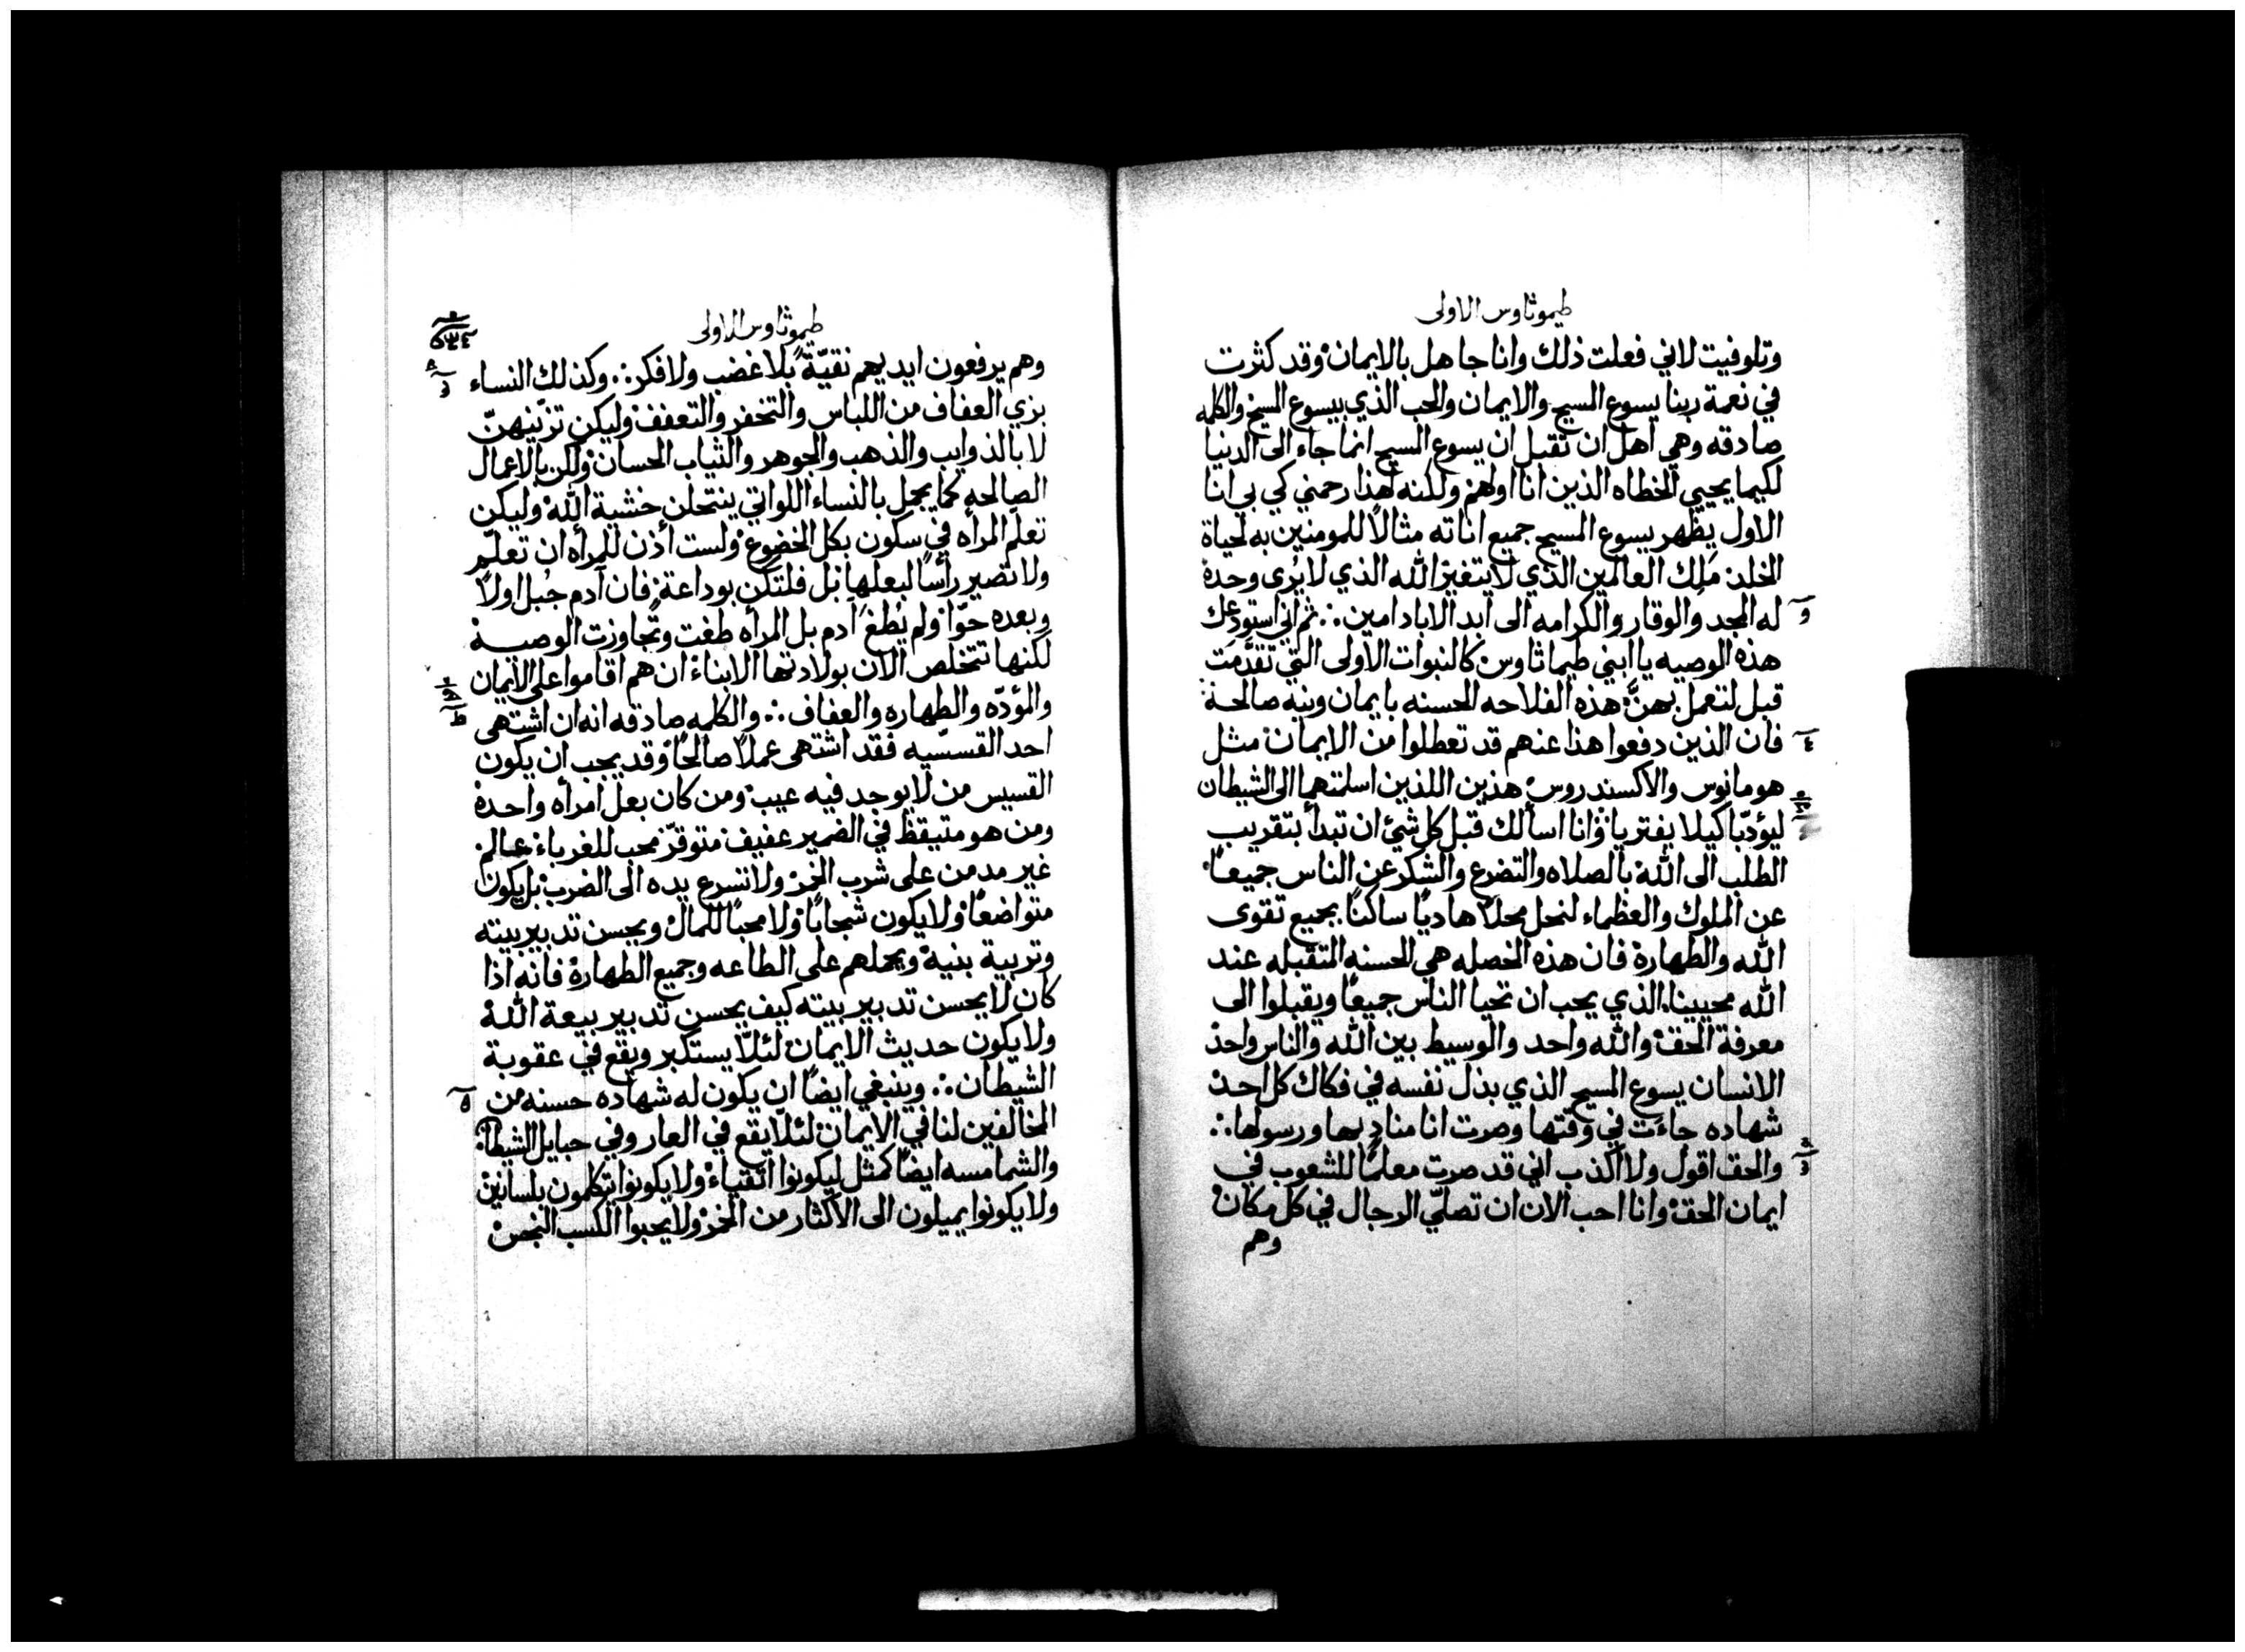 طيموثاوس الاولى
وتلوفيت لاني فعلت ذلك وانا جاهل بالايمان وقد كثرت
في نعمة ربنا يسوع المسيح والايمان والحب الذي بيسوع المسيح والكلمه
صادقه وهي اهل ان تقبل ان يسوع المسيح انما جاء الى الدنيا
لكيما يحيي الخطاه الذين انا اولهم ولكنه لهذا رحمني كي بي انا
الاول يظهر يسوع المسيح جميع اناته مثالاً للمومنين به لحياة
الخلد ملك العالمين الذي لا يتغير الله الذي لا يُرى وحده
له المجد والوقار والكرامه الى ابد الاباد امين ثم اني استودعك
هذه الوصيه يا ابني طيماثاوس كالنبوات الاولى التي تقدّمت
قبل لتعمل بهنّ هذه الفلاحه الحسنه بايمان ونيه صالحة
فان الذين دفعوا هذا عنهم قد تعطلوا من الايمان مثل
هومانوس والاكسندروس هذين اللذين اسلمتهما الى الشيطان
ليؤدّبا كيلا يفتريا وانا اسالك قبل كل شئ ان تبدأ بتقريب
الطلب الى الله بالصلاه والتضرع والشكر عن الناس جميعاً
عن الملوك والعظماء لنحل محلاً هادياً ساكناً بجميع تقوى
الله والطهارة فان هذه الخصله هي الحسنه المتقبله عند
الله محيينا الذي يحب ان تحيا الناس جميعاً ويقبلوا الى
معرفة الحق والله واحد والوسيط بين الله والناس واحد
الانسان يسوع المسيح الذي بذل نفسه في فكاك كل احد
شهاده جاءت في وقتها وصرت انا مناد بها ورسولها
والحق اقول ولا اكذب اني قد صرت معلماً للشعوب في
ايمان الحق وانا احب الان ان تصلّي الرجال في كل مكان
وهم
طيموثاوس الاولى
وهم يرفعون ايديهم نقيّة بلا غضب ولا فكر وكذلك النساء
بزي العفاف من اللباس والتخفر والتعفف وليكن تزيّنهنّ
لا بالذوايب والذهب والجوهر والثياب الحسان ولكن بالاعمال
الصالحه كما يجمل بالنساء اللواتي ينتحلن خشية الله وليكن
تعلم المرأه في سكون بكل الخضوع ولست أذن للمرأه ان تعلّم
ولا تصير رأساً لبعلها بل فلتكن بوداعة فان آدم جُبل اولاً
وبعده حوّا ولم يُطغ آدم بل المرأه طغت وتجاوزت الوصية
لكنها تتخلص الان بولادتها الابناء ان هم اقاموا على الايمان
والمؤدّه والطهاره والعفاف والكلمه صادقه انه ان اشتهى
احد القسسّيه فقد اشتهى عملاً صالحاً وقد يجب ان يكون
القسيس من لا يوجد فيه عيب ومن كان بعل امرأه واحدة
ومن هو متيقظ في الضمير عفيف متوقرّ محب للغرباء عالم
غير مدمن على شرب الخمر ولا تسرع يده الى الضرب بل يكون
متواضعاً ولا يكون شجاباً ولا محباً للمال ويحسن تدبير بيته
وتربية بنيه ويحملهم على الطاعه وجميع الطهارة فانه اذا
كان لا يحسن تدبير بيته كيف يحسن تدبير بيعة الله
ولا يكون حديث الايمان لئلّا يستكبر ويقع في عقوبة
الشيطان وينبغي ايضاً ان يكون له شهاده حسنه من
المخالفين لنا في الايمان لئلّا يقع في العار وفي حبايل الشيطان
والشمامسه ايضاً كمثل ليكونوا اتقياء ولا يكونوا يتكلمون بلسانين
ولا يكونوا يميلون الى الاكثار من الخمر ولا يحبوا الكسب النجس